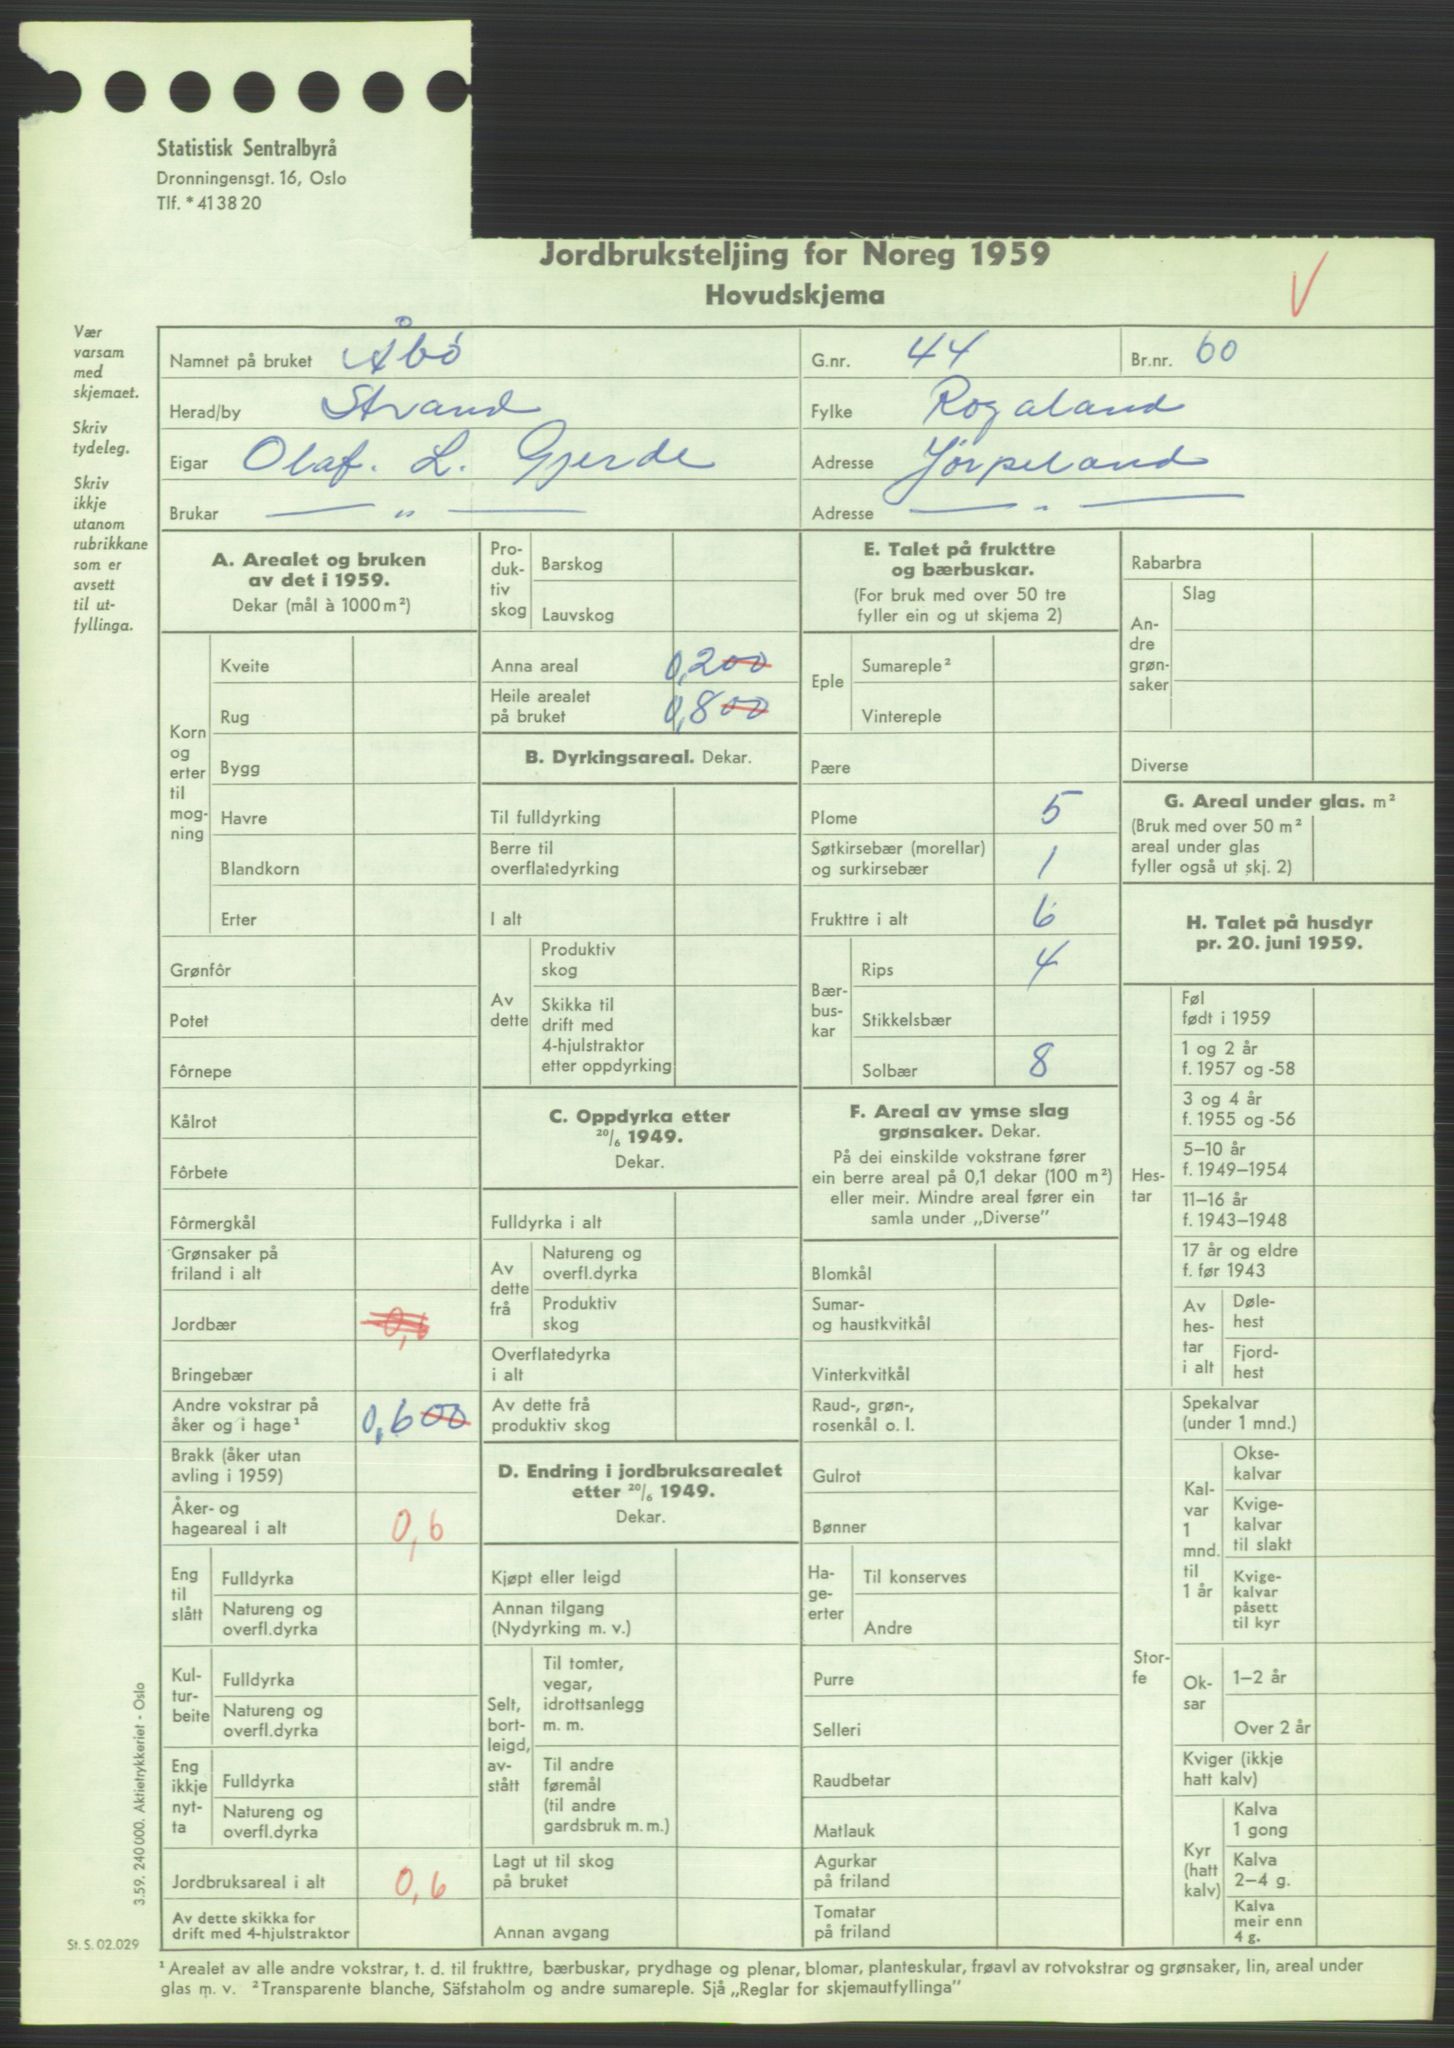 Statistisk Sentralbyrå
Dronningensgt. 16, Oslo
Tlf. * 41 38 20
Jordbruksteljing for Noreg 1959
Hovudskjema
V
Vær
varsam
med
skjemaet.
Skriv
tydeleg.
Skriv
ikkje
utanom
rubrikkane
som er
avsett
til ut-
fyllinga.
Namnet på bruket Åbö
G.nr. 44
Br.nr. 60
Herad/by Strand
Fylke Rogaland
Eigar Olaf. L. Gjerde
Adresse Jörpeland
Brukar — „ —
Adresse — „ —
A. Arealet og bruken
av det i 1959.
Dekar (mål à 1000 m²)
Korn
og
erter
til
mog-
ning
Kveite
Rug
Bygg
Havre
Blandkorn
Erter
Grønfôr
Potet
Fôrnepe
Kålrot
Fôrbete
Fôrmergkål
Grønsaker på
friland i alt
Jordbær 0,6
Bringebær
Andre vokstrar på
åker og i hage¹ 0,600
Brakk (åker utan
avling i 1959)
Åker- og
hageareal i alt 0,6
Eng
til
slått
Fulldyrka
Natureng og
overfl.dyrka
Kul-
tur-
beite
Fulldyrka
Natureng og
overfl.dyrka
Eng
ikkje
nyt-
ta
Fulldyrka
Natureng og
overfl.dyrka
Jordbruksareal i alt 0,6
Av dette skikka for
drift med 4-hjulstraktor
Pro-
duk-
tiv
skog
Barskog
Lauvskog
Anna areal 0,200
Heile arealet
på bruket 0,800
B. Dyrkingsareal. Dekar.
Til fulldyrking
Berre til
overflatedyrking
I alt
Av
dette
Produktiv
skog
Skikka til
drift med
4-hjulstraktor
etter oppdyrking
C. Oppdyrka etter
20/6 1949.
Dekar.
Fulldyrka i alt
Av
dette
frå
Natureng og
overfl.dyrka
Produktiv
skog
Overflatedyrka
i alt
Av dette frå
produktiv skog
D. Endring i jordbruksarealet
etter 20/6 1949.
Dekar.
Kjøpt eller leigd
Annan tilgang
(Nydyrking m. v.)
Selt,
bort-
leigd,
av-
stått
Til tomter,
vegar,
idrottsanlegg
m. m.
Til andre
føremål
(til andre
gardsbruk m. m.)
Lagt ut til skog
på bruket
Annan avgang
E. Talet på frukttre
og bærbuskar.
(For bruk med over 50 tre
fyller ein og ut skjema 2)
Eple
Sumareple²
Vintereple
Pære
Plome 5
Søtkirsebær (morellar)
og surkirsebær 1
Frukttre i alt 6
Bær-
bus-
kar
Rips 4
Stikkelsbær
Solbær 8
F. Areal av ymse slag
grønsaker. Dekar.
På dei einskilde vokstrane fører
ein berre areal på 0,1 dekar (100 m²)
eller meir. Mindre areal fører ein
samla under „Diverse”
Blomkål
Sumar-
og haustkvitkål
Vinterkvitkål
Raud-, grøn-,
rosenkål o. l.
Gulrot
Bønner
Ha-
ge-
erter
Til konserves
Andre
Purre
Selleri
Raudbetar
Matlauk
Agurkar
på friland
Tomatar
på friland
Rabarbra
An-
dre
grøn-
saker
Slag
Diverse
G. Areal under glas. m²
(Bruk med over 50 m²
areal under glas
fyller også ut skj. 2)
H. Talet på husdyr
pr. 20. juni 1959.
Hes-
tar
Føl
født i 1959
1 og 2 år
f. 1957 og -58
3 og 4 år
f. 1955 og -56
5–10 år
f. 1949–1954
11–16 år
f. 1943–1948
17 år og eldre
f. før 1943
Av
hes-
tar
i alt
Døle-
hest
Fjord-
hest
Stor-
fe
Spekalvar
(under 1 mnd.)
Kal-
var
1
mnd.
til
1 år
Okse-
kalvar
Kvige-
kalvar
til slakt
Kvige-
kalvar
påsett
til kyr
Ok-
sar
1–2 år
Over 2 år
Kviger (ikkje
hatt kalv)
Kyr
(hatt
kalv)
Kalva
1 gong
Kalva
2–4 g.
Kalva
meir enn
4 g.
3.59. 240 000. Aktietrykkeriet - Oslo
St. S. 02.029
¹ Arealet av alle andre vokstrar, t. d. til frukttre, bærbuskar, prydhage og plenar, blomar, planteskular, frøavl av rotvokstrar og grønsaker, lin, areal under
glas m. v. ² Transparente blanche, Säfstaholm og andre sumareple. Sjå „Reglar for skjemautfyllinga”